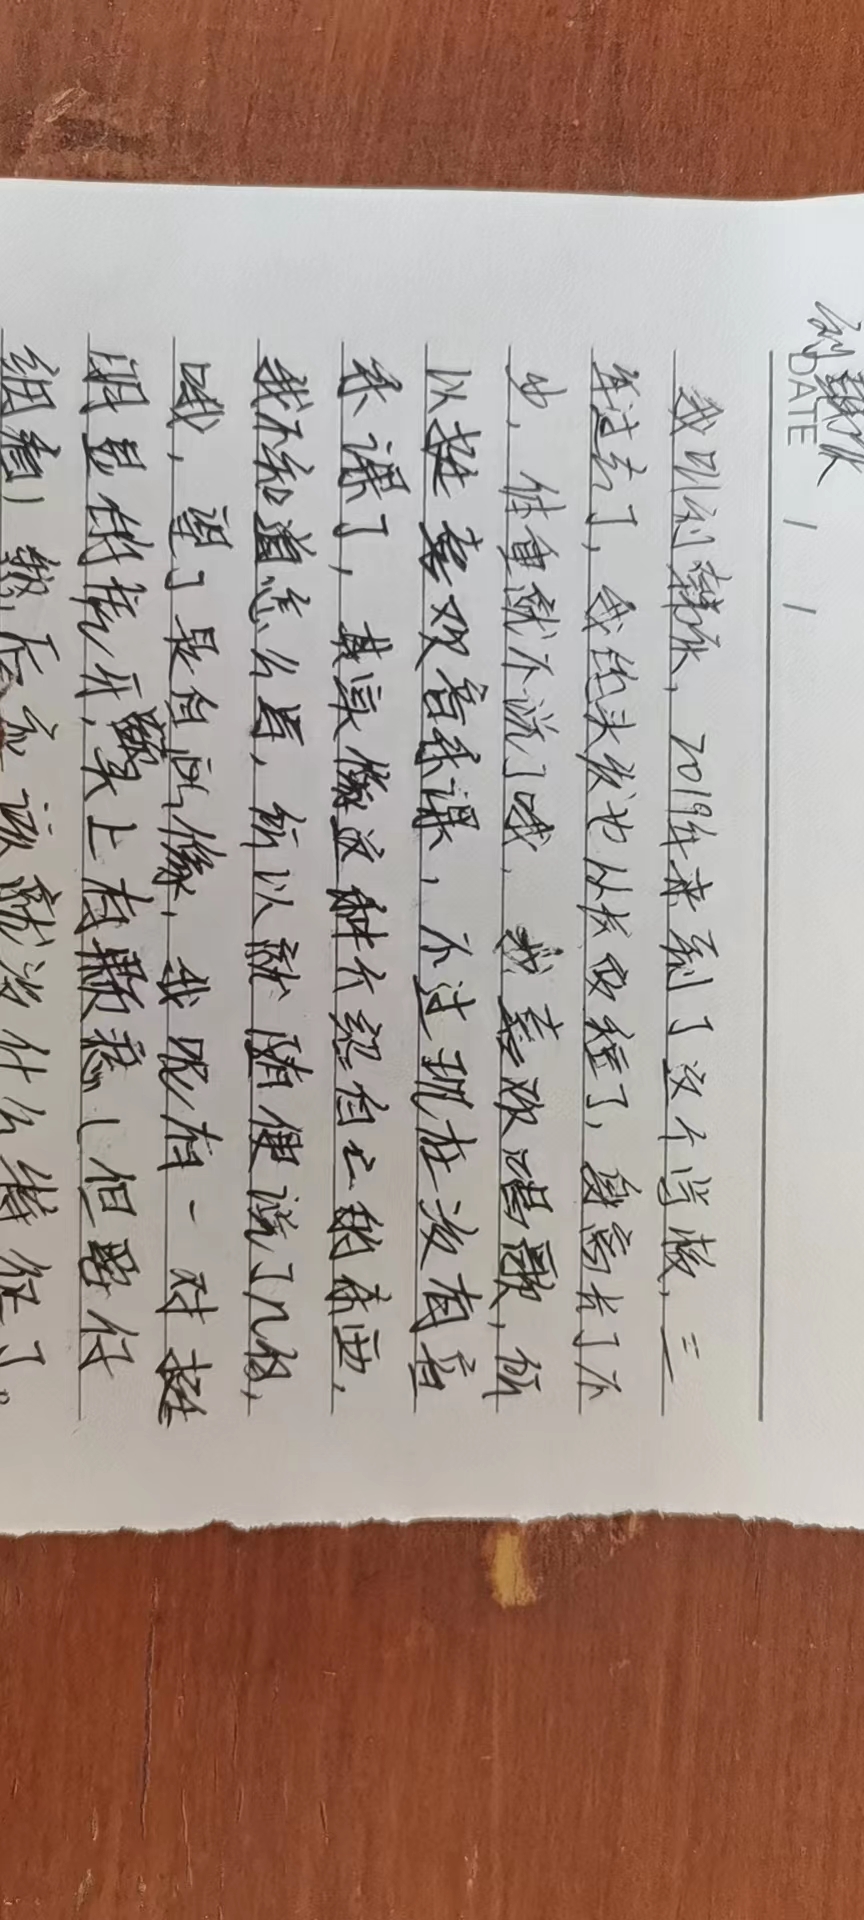 DATE / /
我叫刘，2019年来到了这个学校，三
年过去了，我的头发也从长变短了，身高长了不
少，体重就不说了哦，我喜欢唱歌，所
以挺喜欢音乐课，不过现在没有音
乐课了，其实像这种介绍自己的东西，
我不知道怎么写，所以就随便说了几句，
哦，望了是自画像，我呢有一对挺
明显的虎牙，上有颗痣（但要仔
细看）然后应该就没什么特征了。